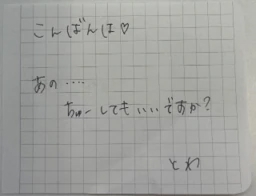 こんばんは♡
あの‥‥
ちゅーしてもいいですか?
とわ